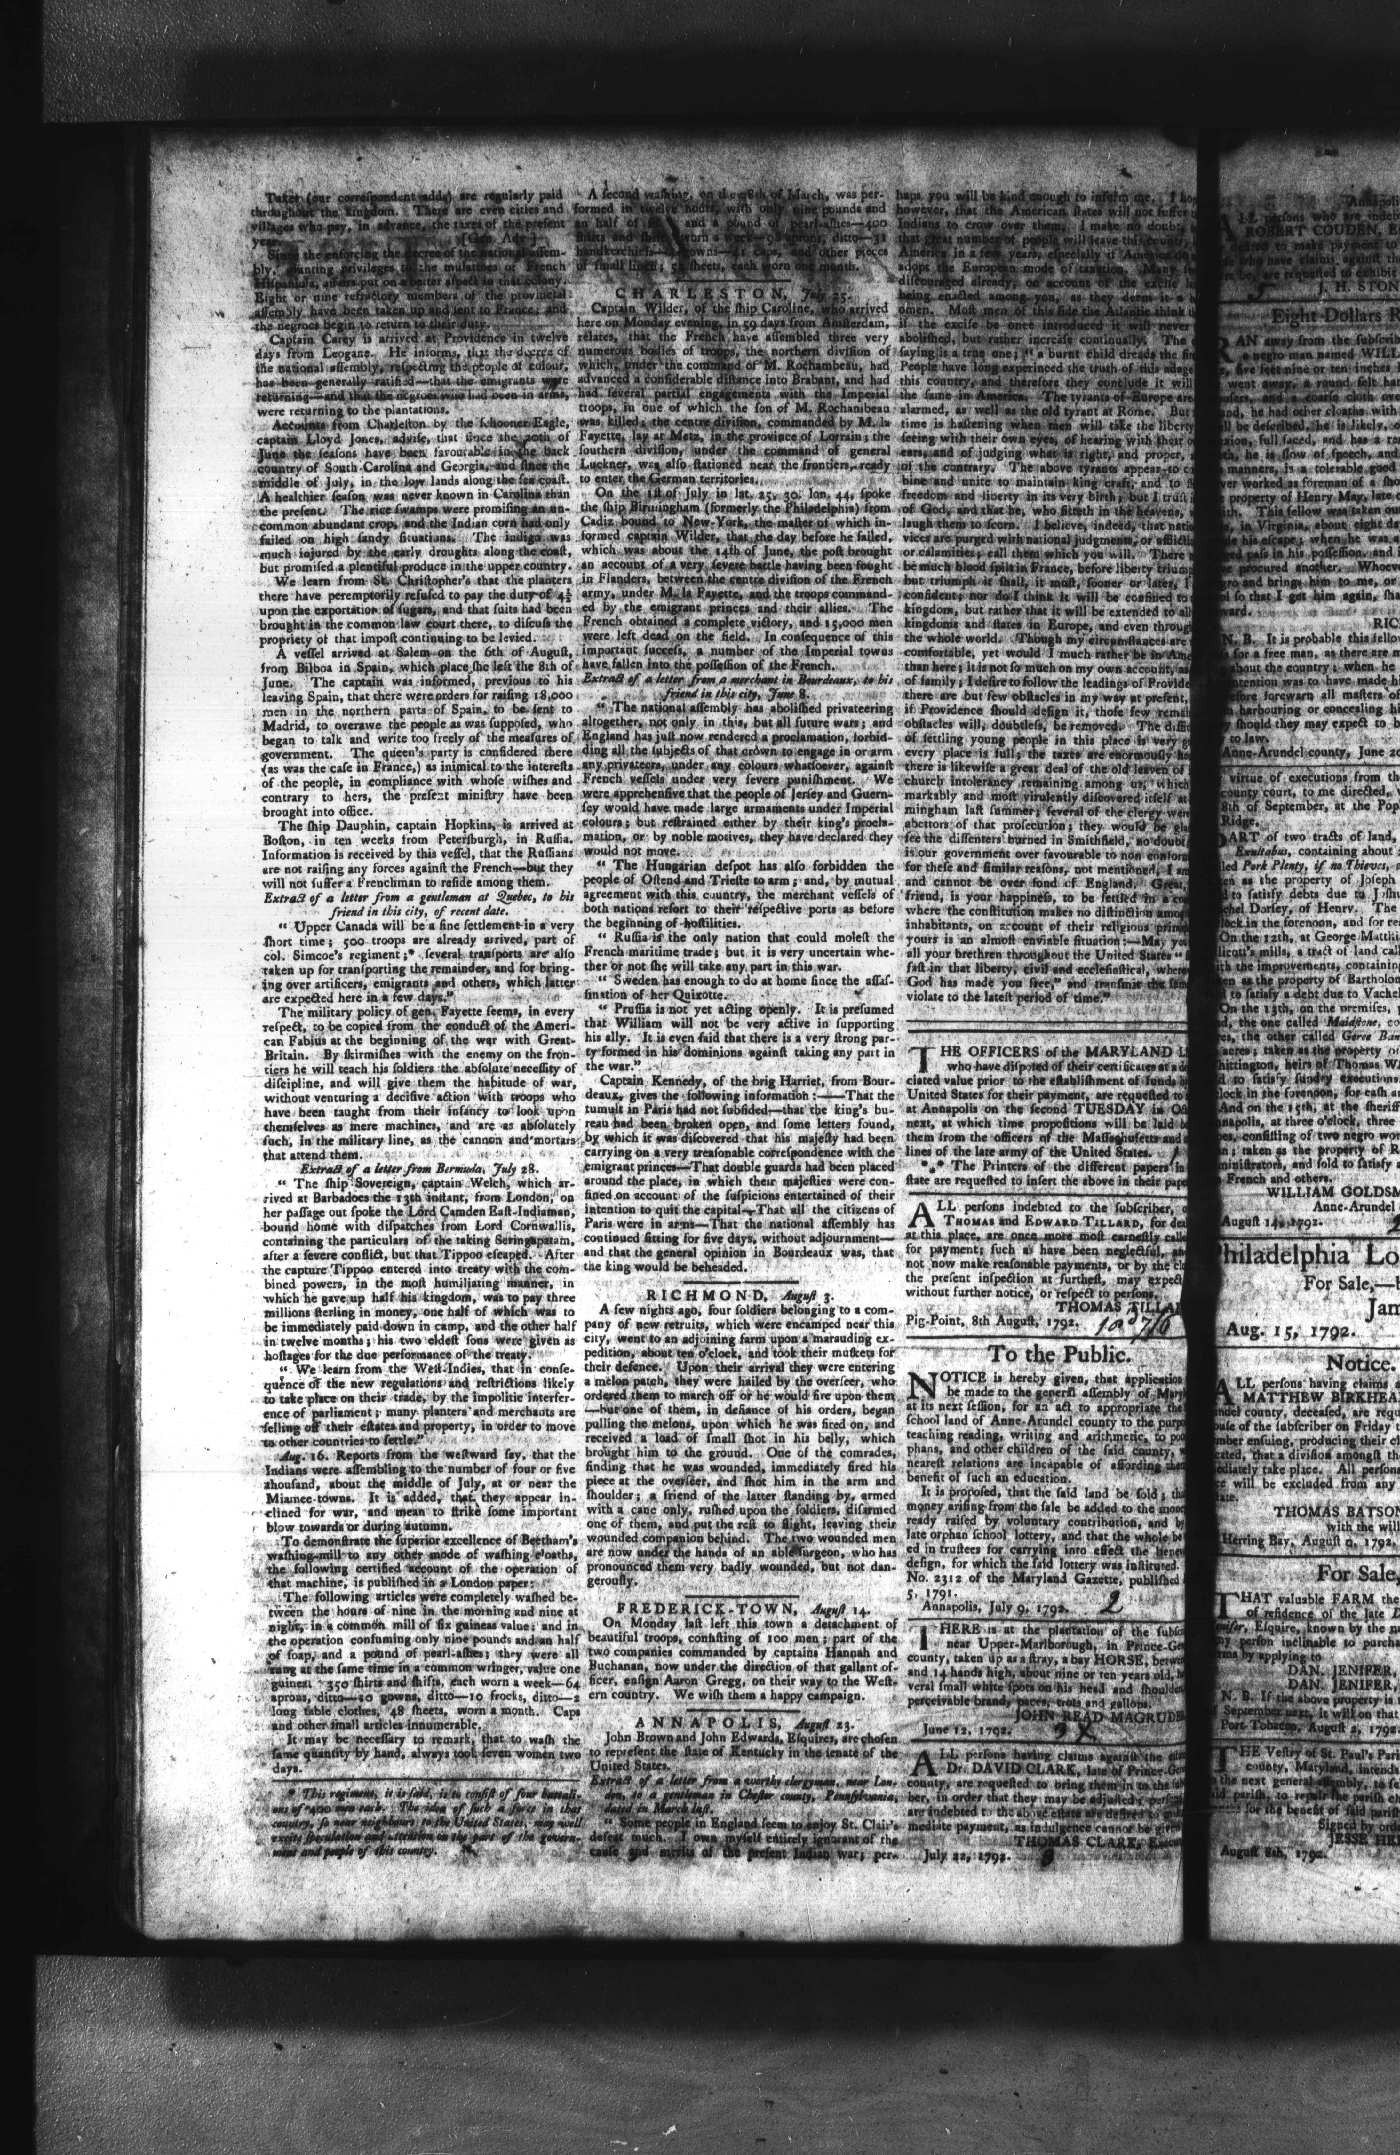 Taxes (our correspondent adds) are regularly paid
throughout the kingdom. There are even cities and
villages who pay, in advance, the taxes of the present
year. [Gen. Adv.]
Since the enforcing the decree of the national assem-
bly, granting privileges to the mulattoes of French
Hispaniola, affairs put on a better aspect in that colony.
Eight or nine refractory members of the provincial
assembly have been taken up and sent to France; and
the negroes begin to return to their duty.
Captain Carey is arrived at Providence in twelve
days from Leogane. He informs, that the decree of
the national assembly, respecting the people of colour,
has been generally ratified—that the emigrants were
returning—and that the negroes who had been in arms,
were returning to the plantations.
Accounts from Charleston by the schooner Eagle,
captain Lloyd Jones, advise, that since the 20th of
June the seasons have been favourable in the back
country of South-Carolina and Georgia, and since the
middle of July, in the low lands along the sea coast.
A healthier season was never known in Carolina than
the present. The rice swamps were promising an un-
common abundant crop, and the Indian corn had only
failed on high sandy situations. The indigo was
much injured by the early droughts along the coast,
but promised a plentiful produce in the upper country.
We learn from St. Christopher's that the planters
there have peremptorily refused to pay the duty of 4½
upon the exportation of sugars, and that suits had been
brought in the common law court there, to discuss the
propriety of that impost continuing to be levied.
A vessel arrived at Salem on the 6th of August,
from Bilboa in Spain, which place she left the 8th of
June. The captain was informed, previous to his
leaving Spain, that there were orders for raising 18,000
men in the northern parts of Spain, to be sent to
Madrid, to overawe the people as was supposed, who
began to talk and write too freely of the measures of
government. The queen's party is considered there
(as was the case in France,) as inimical to the interests
of the people, in compliance with whose wishes and
contrary to hers, the present ministry have been
brought into office.
The ship Dauphin, captain Hopkins, is arrived at
Boston, in ten weeks from Petersburgh, in Russia.
Information is received by this vessel, that the Russians
are not raising any forces against the French—but they
will not suffer a Frenchman to reside among them.
Extract of a letter from a gentleman at Quebec, to his
friend in this city, of recent date.
" Upper Canada will be a fine settlement in a very
short time; 500 troops are already arrived, part of
col. Simcoe's regiment;* several transports are also
taken up for transporting the remainder, and for bring-
ing over artificers, emigrants and others, which latter
are expected here in a few days."
The military policy of gen. Fayette seems, in every
respect, to be copied from the conduct of the Ameri-
can Fabius at the beginning of the war with Great-
Britain. By skirmishes with the enemy on the fron-
tiers he will teach his soldiers the absolute necessity of
discipline, and will give them the habitude of war,
without venturing a decisive action with troops who
have been taught from their infancy to look upon
themselves as mere machines, and are as absolutely
such, in the military line, as the cannon and mortars
that attend them.
Extract of a letter from Bermuda, July 28.
" The ship Sovereign, captain Welch, which ar-
rived at Barbadoes the 13th instant, from London, on
her passage out spoke the Lord Camden East-Indiaman,
bound home with dispatches from Lord Cornwallis,
containing the particulars of the taking Seringapatam,
after a severe conflict, but that Tippoo escaped. After
the capture Tippoo entered into treaty with the com-
bined powers, in the most humiliating manner, in
which he gave up half his kingdom, was to pay three
millions sterling in money, one half of which was to
be immediately paid down in camp, and the other half
in twelve months; his two eldest sons were given as
hostages for the due performance of the treaty.
" We learn from the West-Indies, that in conse-
quence of the new regulations and restrictions likely
to take place on their trade, by the impolitic interfer-
ence of parliament; many planters and merchants are
selling off their estates and property, in order to move
to other countries to settle."
Aug. 16. Reports from the westward say, that the
Indians were assembling to the number of four or five
thousand, about the middle of July, at or near the
Miamee-towns. It is added, that they appear in-
clined for war, and mean to strike some important
blow towards or during autumn.
To demonstrate the superior excellence of Beetham's
washing-mill to any other mode of washing cloaths,
the following certified account of the operation of
that machine, is published in a London paper:
The following articles were completely washed be-
tween the hours of nine in the morning and nine at
night, in a common mill of six guineas value; and in
the operation consuming only nine pounds and an half
of soap, and a pound of pearl-ashes; they were all
rung at the same time in a common wringer, value one
guinea: 350 shirts and shifts, each worn a week—64
aprons, ditto—10 gowns, ditto—10 frocks, ditto—2
long table clothes, 48 sheets, worn a month. Caps
and other small articles innumerable.
It may be necessary to remark, that to wash the
same quantity by hand, always took seven women two
days.
* This regiment, it is said, is to consist of four battali-
ons of 400 men each. The idea of such a force in that
country, so near neighbours to the United States, may well
excite speculation and attention on the part of the govern-
ment and people of this country.
A second washing, on the 28th of March, was per-
formed in twelve hours, with only nine pounds and
an half of soap, and a pound of pearl-ashes—400
shirts and shifts, worn a week—58 aprons, ditto—31
handkerchiefs— gowns—41 caps, and other pieces
of small linen; 52 sheets, each worn one month.
CHARLESTON, July 25.
Captain Wilder, of the ship Caroline, who arrived
here on Monday evening, in 59 days from Amsterdam,
relates, that the French have assembled three very
numerous bodies of troops, the northern division of
which, under the command of M. Rochambeau, had
advanced a considerable distance into Brabant, and had
had several partial engagements with the Imperial
troops, in one of which the son of M. Rochambeau
was killed; the centre division, commanded by M. la
Fayette, lay at Metz, in the province of Lorrain; the
southern division, under the command of general
Luckner, was also stationed near the frontiers, ready
to enter the German territories.
On the 1st of July in lat. 25, 30, lon. 44, spoke
the ship Birmingham (formerly the Philadelphia) from
Cadiz bound to New-York, the master of which in-
formed captain Wilder, that the day before he sailed,
which was about the 14th of June, the post brought
an account of a very severe battle having been fought
in Flanders, between the centre division of the French
army, under M. la Fayette, and the troops command-
ed by the emigrant princes and their allies. The
French obtained a complete victory, and 15,000 men
were left dead on the field. In consequence of this
important success, a number of the Imperial towns
have fallen into the possession of the French.
Extract of a letter from a merchant in Bourdeaux, to his
friend in this city, June 8.
" The national assembly has abolished privateering
altogether, not only in this, but all future wars; and
England has just now rendered a proclamation, forbid-
ding all the subjects of that crown to engage in or arm
any privateers, under any colours whatsoever, against
French vessels under very severe punishment. We
were apprehensive that the people of Jersey and Guern-
sey would have made large armaments under Imperial
colours; but restrained either by their king's procla-
mation, or by noble motives, they have declared they
would not move.
" The Hungarian despot has also forbidden the
people of Ostend and Trieste to arm; and, by mutual
agreement with this country, the merchant vessels of
both nations resort to their respective ports as before
the beginning of hostilities.
" Russia is the only nation that could molest the
French maritime trade; but it is very uncertain whe-
ther or not she will take any part in this war.
" Sweden has enough to do at home since the assas-
sination of her Quixotte.
" Prussia is not yet acting openly. It is presumed
that William will not be very active in supporting
his ally. It is even said that there is a very strong par-
ty formed in his dominions against taking any part in
the war."
Captain Kennedy, of the brig Harriet, from Bour-
deaux, gives the following information:——That the
tumult in Paris had not subsided—that the king's bu-
reau had been broken open, and some letters found,
by which it was discovered that his majesty had been
carrying on a very treasonable correspondence with the
emigrant princes—That double guards had been placed
around the place, in which their majesties were con-
fined on account of the suspicions entertained of their
intention to quit the capital—That all the citizens of
Paris were in arms—That the national assembly has
continued sitting for five days, without adjournment—
and that the general opinion in Bourdeaux was, that
the king would be beheaded.
RICHMOND, August 3.
A few nights ago, four soldiers belonging to a com-
pany of new recruits, which were encamped near this
city, went to an adjoining farm upon a marauding ex-
pedition, about ten o'clock, and took their muskets for
their defence. Upon their arrival they were entering
a melon patch, they were hailed by the overseer, who
ordered them to march off or he would fire upon them
—but one of them, in defiance of his orders, began
pulling the melons, upon which he was fired on, and
received a load of small shot in his belly, which
brought him to the ground. One of the comrades,
finding that he was wounded, immediately fired his
piece at the overseer, and shot him in the arm and
shoulder; a friend of the latter standing by, armed
with a cane only, rushed upon the soldiers, disarmed
one of them, and put the rest to flight, leaving their
wounded companion behind. The two wounded men
are now under the hands of an able surgeon, who has
pronounced them very badly wounded, but not dan-
gerously.
FREDERICK-TOWN, August 14.
On Monday last left this town a detachment of
beautiful troops, consisting of 100 men; part of the
two companies commanded by captains Hannah and
Buchanan, now under the direction of that gallant of-
ficer, ensign Aaron Gregg, on their way to the West-
ern country. We wish them a happy campaign.
ANNAPOLIS, August 23.
John Brown and John Edwards, Esquires, are chosen
to represent the state of Kentucky in the senate of the
United States.
Extract of a letter from a worthy clergyman, near Lon-
don, to a gentleman in Chester county, Pennsylvania,
dated in March last.
" Some people in England seem to enjoy St. Clair's
defeat much. I own myself entirely ignorant of the
cause and merits of the present Indian war; per-
haps you will be kind enough to inform me. I hop
however, that the American states will not suffer
Indians to crow over them. I make no doubt,
that great number of people will leave this country
America in a few years, especially if America do
adopt the European mode of taxation. Many
discouraged already, on account of the excise
being enacted among you, as they deem it a
omen. Most men of this side the Atlantic think
if the excise be once introduced it will never
abolished, but rather increase continually. The
saying is a true one; " a burnt child dreads the fi
People have long experienced the truth of this adage
this country, and therefore they conclude it will
the same in America. The tyrants of Europe are
alarmed, as well as the old tyrant at Rome. But
time is hastening when men will take the liberty
seeing with their own eyes, of hearing with their o
ears, and of judging what is right, and proper,
of the contrary. The above tyrants appear to c
bine and unite to maintain king craft, and to
freedom and liberty in its very birth; but I trust i
of God, and that he, who sitteth in the heavens,
laugh them to scorn. I believe, indeed, that nati
vices are purged with national judgments, or afflictio
or calamities; call them which you will. There
be much blood spilt in France, before liberty triump
but triumph it shall, it most, sooner or later, I
confident; nor do I think it will be confined to
kingdom, but rather that it will be extended to all
kingdoms and states in Europe, and even through
the whole world. Though my circumstances are
comfortable, yet would I much rather be in Ame
than here; it is not so much on my own account, as
of family; I desire to follow the leadings of Provide
there are but few obstacles in my way at present,
if Providence should design it, those few remai
obstacles will, doubtless, be removed. The diffic
of settling young people in this place is very g
every place is full; the taxes are enormously he
there is likewise a great deal of the old leaven of
church intolerancy remaining among us, which
markably and most virulently discovered itself at
mingham last summer; several of the clergy were
abettors of that prosecution; they would be gla
see the dissenters burned in Smithfield, no doubt
is our government over favourable to non conform
for these and similar reasons, not mentioned, I am
and cannot be over fond of England. Great,
friend, is your happiness, to be settled in a co
where the constitution makes no distinction amon
inhabitants, on account of their religious princ
yours is an almost enviable situation:—May you
all your brethren throughout the United States "
fast in that liberty, civil and ecclesiastical, where
God has made you free," and transmit the sam
violate to the latest period of time."
THE OFFICERS of the MARYLAND LI
who have disposed of their certificates at a de
ciated value prior to the establishment of funds b
United States for their payment, are requested to
at Annapolis on the second TUESDAY in Oc
next, at which time propositions will be laid b
them from the officers of the Massachusetts and
lines of the late army of the United States.
*⁎* The Printers of the different papers in
state are requested to insert the above in their pape
ALL persons indebted to the subscriber, o
THOMAS and EDWARD TILLARD, for dea
at this place, are once more most earnestly calle
for payment; such as have been neglectful, and
not now make reasonable payments, or by the clo
the present inspection at furthest, may expect
without further notice, or respect to persons.
THOMAS TILLAR
Pig-Point, 8th August, 1792.
To the Public.
NOTICE is hereby given, that application
be made to the general assembly of Mary
at its next session, for an act to appropriate the
school land of Anne-Arundel county to the purpo
teaching reading, writing and arithmetic, to poo
phans, and other children of the said county, w
nearest relations are incapable of affording them
benefit of such an education.
It is proposed, that the said land be sold; tha
money arising from the sale be added to the mone
ready raised by voluntary contribution, and b
late orphan school lottery, and that the whole be
ed in trustees for carrying into effect the bene
design, for which the said lottery was instituted.
No. 2312 of the Maryland Gazette, published
5, 1791.
Annapolis, July 9, 1792. 2
THERE is at the plantation of the subsc
near Upper-Marlborough, in Prince-Ge
county, taken up as a stray, a bay HORSE, betwe
and 14 hands high, about nine or ten years old,
veral small white spots on his head and shoulder
perceivable brand, paces, trots and gallops.
JOHN READ MAGRUDE
June 12, 1792. 3 X
ALL persons having claims against the esta
Dr. DAVID CLARK, late of Prince-Geo
county, are requested to bring them in to the sub
ber, in order that they may be adjusted; person
are indebted to the above estate are desired to m
mediate payment, as indulgence cannot be given
THOMAS CLARK, Execu
July 22, 1792.
Annapoli
ALL persons who are indeb
ROBERT COUDEN, E
desired to make payment
who have claims against th
re be, are requested to exhibit
5 J. H. STON
Eight Dollars R
RAN away from the subscrib
a negro man named WILL
five feet nine or ten inches h
went away, a round felt hat
sers, and a coarse cloth co
and, he had other cloaths with
ll be described, he is likely, o
xion, full faced, and has a r
th, he is slow of speech, and
manners, is a tolerable good
ver worked as foreman of a sho
property of Henry May, late
ith. This fellow was taken ou
, in Virginia, about eight o
e his escape; when he was a
ed pass in his possession, and
procured another. Whoev
gro and brings him to me, or
l so that I get him again, sha
ward.
RIC
N. B. It is probable this fello
for a free man, as there are m
about the country; when he
ntention was to have made hi
fore forewarn all masters of
harbouring or concealing hi
should they may expect to b
to law.
Anne-Arundel county, June 20
virtue of executions from th
county court, to me directed,
8th of September, at the Pop
Ridge,
PART of two tracts of land,
Exultabus, containing about
led Pork Plenty, if no Thieves,
en as the property of Joseph
to satisfy debts due to Joshu
chel Dorsey, of Henry. The
lock in the forenoon, and for re
On the 12th, at George Matthi
licott's mills, a tract of land call
ith the improvements, containin
en as the property of Bartholom
to satisfy a debt due to Vachel
On the 13th, on the premises,
d, the one called Maidstone, co
res, the other called Gores Ban
acres; taken as the property o
hittington, heirs of Thomas W
to satisfy sundry execution
clock in the forenoon, for cash an
And on the 15th, at the sheriff
nnapolis, at three o'clock, three
es, consisting of two negro wo
n; taken as the property of R
ministrators, and sold to satisfy
French and others.
WILLIAM GOLDSM
Anne-Arundel
August 14, 1792.
Philadelphia Lo
For Sale,—b
Jam
Aug. 15, 1792.
Notice.
ALL persons having claims a
MATTHEW BIRKHEA
ndel county, deceased, are requ
ouse of the subscriber on Friday t
mber ensuing, producing their cl
cated, that a division amongst th
ediately take place. All persons
ce will be excluded from any
tate.
THOMAS BATSON
with the will
Herring Bay, August 9, 1792.
For Sale,
THAT valuable FARM the
of residence of the late D
enifer, Esquire, known by the na
ny person inclinable to purcha
rms by applying to
DAN. JENIFER,
DAN. JENIFER,
N. B. If the above property is
September next, it will on that
Port-Tobacco, August 2, 1792
THE Vestry of St. Paul's Pari
county, Maryland, intends
the next general assembly, to
aid parish, to repair the parish ch
for the benefit of said parish
Signed by orde
JESSE HE
August 8th, 1792.